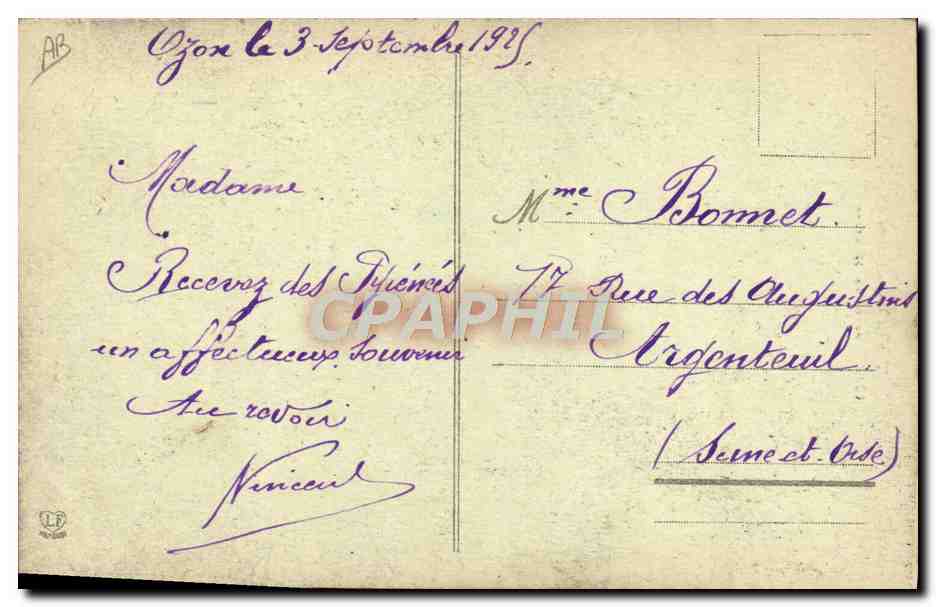 AB
Ozon le 3 Septembre 1925.
Madame
Recevez des Pyrénées
un affectueux Souvenir
Au revoir
Vincent
Mme Bonnet.
17 Rue des Augustins
Argenteuil.
(Seine et Oise)
CPAPHIL
LF